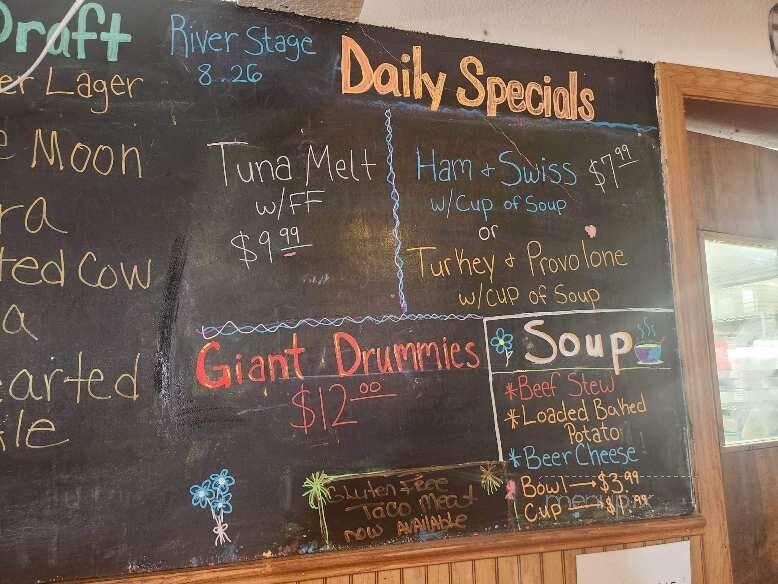 Draft
er Lager
e Moon
ra
ted Cow
a
earted
le
River Stage
8.26
Daily Specials
Tuna Melt
w/FF
$9.99
Ham & Swiss $7.99
w/Cup of Soup
or
Turkey & Provolone
w/Cup of Soup
Giant Drummies
$12.00
Soup
*Beef Stew
*Loaded Baked
Potato
*Beer Cheese
Bowl → $3.99
Cup
Gluten Free
Taco Meat
now Available